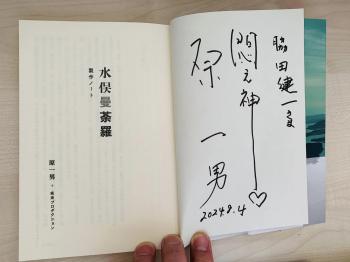 水俣曼荼羅
製作ノート
原一男+疾走プロダクション
脇田健一さま
悶え神♡
原一男
2024.9.4